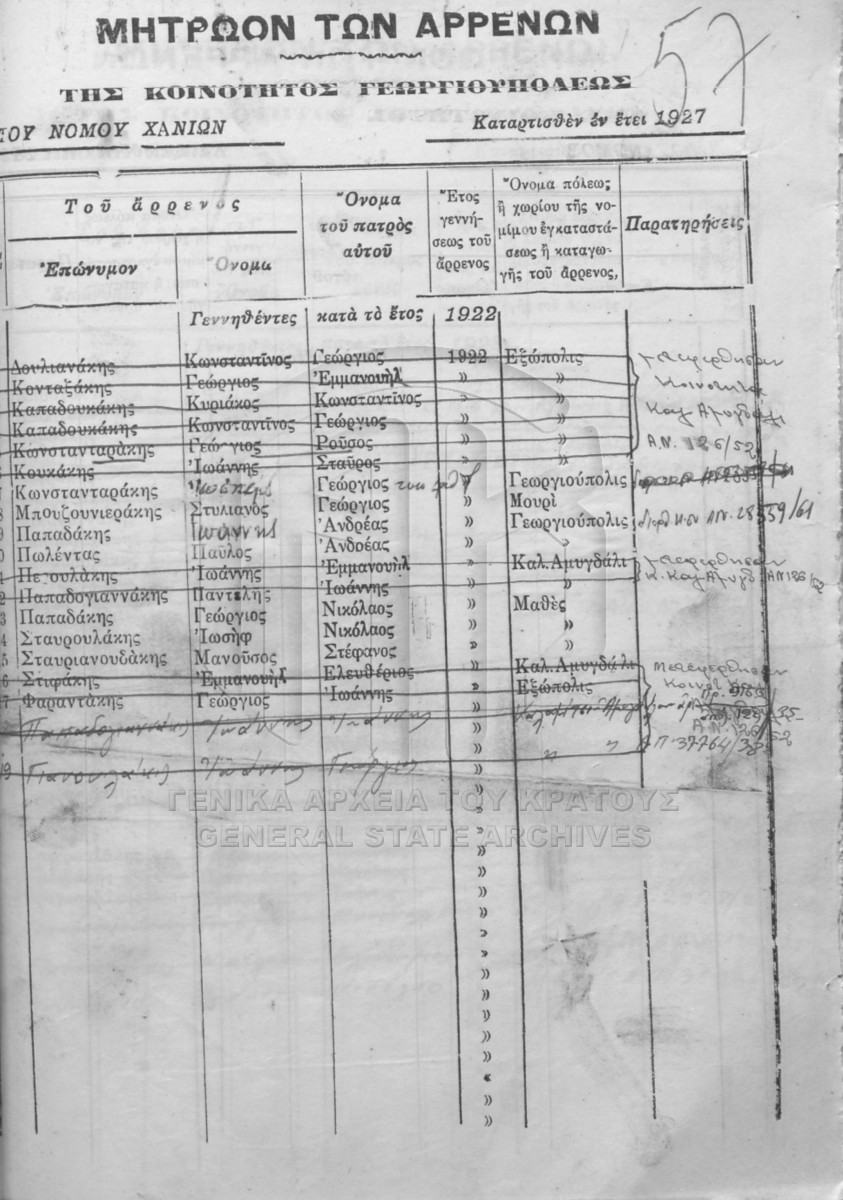 ΜΗΤΡΩΟΝ ΤΩΝ ΑΡΡΕΝΩΝ
57
ΤΗΣ ΚΟΙΝΟΤΗΤΟΣ ΓΕΩΡΓΙΟΥΠΟΛΕΩΣ
ΤΟΥ ΝΟΜΟΥ ΧΑΝΙΩΝ Καταρτισθὲν ἐν ἔτει 1927
Τοῦ ἄρρενος
Ἐπώνυμον
Ὄνομα
Ὄνομα
τοῦ πατρὸς
αὐτοῦ
Ἔτος
γεννή-
σεως τοῦ
ἄρρενος
Ὄνομα πόλεως
ἢ χωρίου τῆς νο-
μίμου ἐγκαταστά-
σεως ἢ καταγω-
γῆς τοῦ ἄρρενος,
Παρατηρήσεις
Γεννηθέντες κατὰ τὸ ἔτος 1922
Δουλιανάκης Κωνσταντῖνος Γεώργιος 1922 Ἐξώπολις
Κονταξάκης Γεώργιος Ἐμμανουὴλ » »
Καπαδουκάκης Κυριάκος Κωνσταντῖνος » »
Καπαδουκάκης Κωνσταντῖνος Γεώργιος » »
Κωνστανταράκης Γεώργιος Ροῦσος » » Α.Ν. 126/52
6 Κουκάκης Ἰωάννης Σταῦρος » »
7 Κωνστανταράκης Γεώργιος » Γεωργιούπολις
8 Μπουζουνιεράκης Στυλιανὸς Γεώργιος » Μουρὶ
9 Παπαδάκης Ἰωάννης Ἀνδρέας » Γεωργιούπολις Α.Ν. 28559/61
0 Πωλέντας Παῦλος Ἀνδρέας » »
1 Πετουλάκης Ἰωάννης Ἐμμανουὴλ » Καλ. Ἀμυγδάλι
2 Παπαδογιαννάκης Παντελῆς Ἰωάννης » »
3 Παπαδάκης Γεώργιος Νικόλαος » Μαθὲς
4 Σταυρουλάκης Ἰωσὴφ Νικόλαος » »
5 Σταυριανουδάκης Μανοῦσος Στέφανος » »
6 Στιφάκης Ἐμμανουὴλ Ἐλευθέριος » Καλ. Ἀμυγδάλι
7 Φαραντάκης Γεώργιος Ἰωάννης » Ἐξώπολις
Παπαδογιαννάκης Ἰωάννης Ἰωάννης »
9 Γιανουλάκης Ἰωάννης Γεώργιος » » » Α.Π. 37764/38
ΓΕΝΙΚΑ ΑΡΧΕΙΑ ΤΟΥ ΚΡΑΤΟΥΣ
GENERAL STATE ARCHIVES